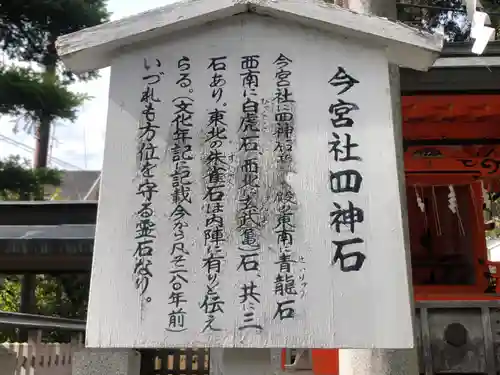 今宮社四神石
今宮社に四神石せり。殿の東南に青龍石
西南に白虎石、西北に玄武(亀)石、共に三
石あり。東北の朱雀石は内陣に有りと伝え
らる。(文化年記に記載今から凡そ二八〇年前
いづれも方位を守る霊石なり。